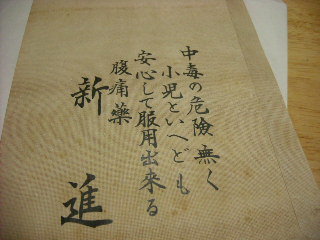 中毒の危險無く
小児といへども
安心して服用出来る
腹痛藥
新進